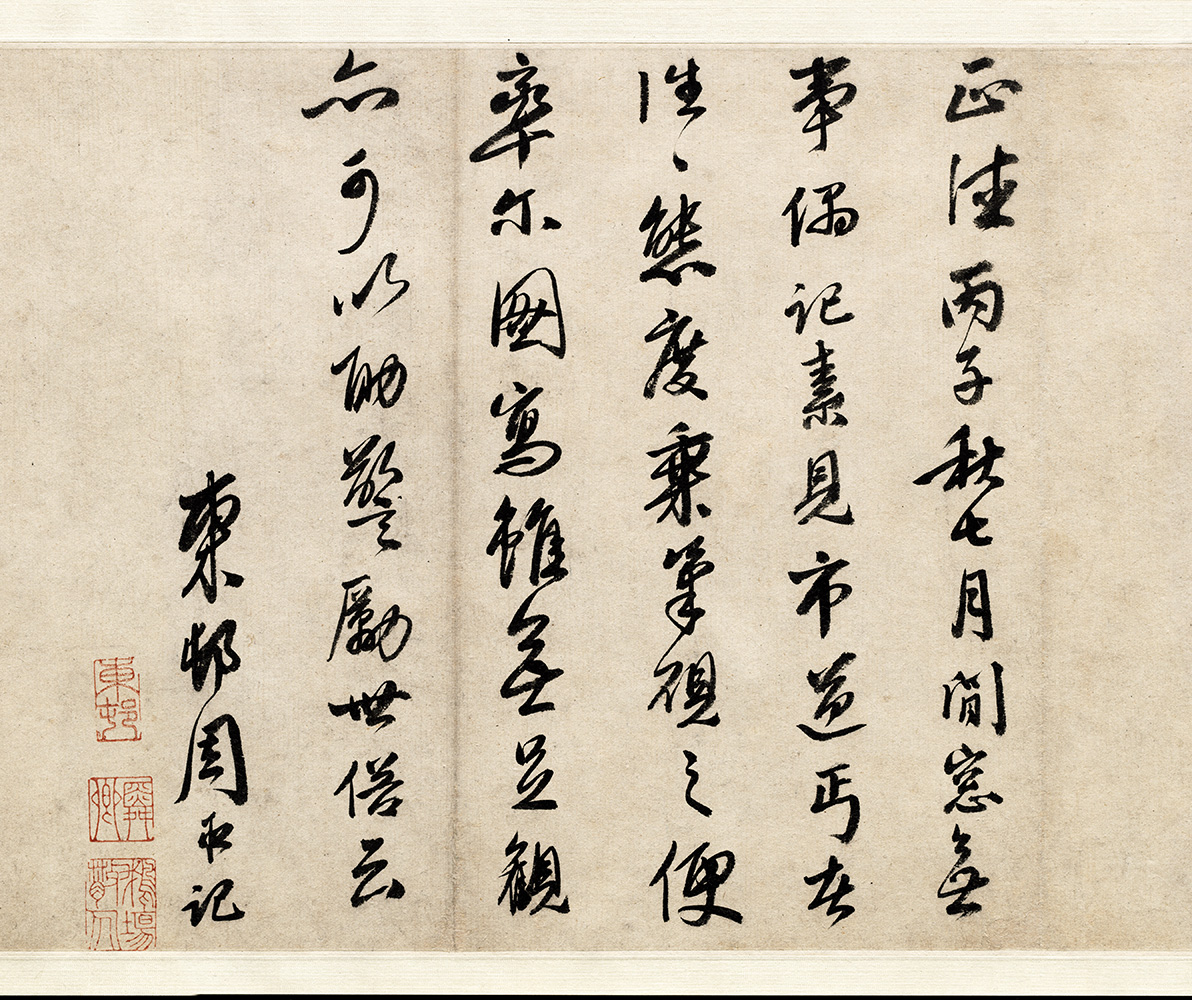 正德丙子秋七月閒窓無
事偶記素見市道丐者
往〻態度乗筆硯之便
率尔圖寫雖無足觀
亦可以助警勵世俗云
東邨周臣記
東邨
舜卿
鵝場散人